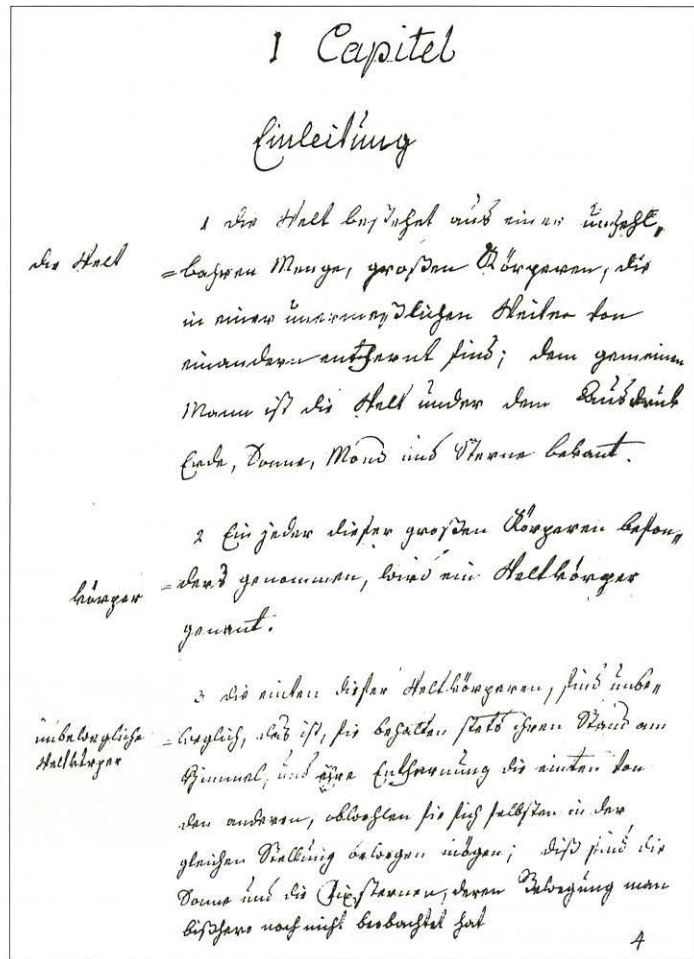 I Capitel
Einleitung
1 die Welt bestehet aus einer unzehl„
die Welt =bahren Menge, großen Körperen, die
in einer unermeßlichen Weiten von
einandern entfernt sind; dem gemeinen
Mann ist die Welt under dem Ausdruk
Erde, Sonne, Mond und Sterne bekant.
2 Ein jeder dieser großen Körperen beson„
körper =ders genommen, wird ein Weltkörper
genant.
3 die einten dieser Weltkörperen, sind unbe„
unbewegliche =weglich, das ist, sie behalten stets ihren Stand am
Weltkörper
Himmel, und ihre Entfernung die einten von
den anderen, obwohlen sie sich selbsten in der
gleichen Stellung bewegen mögen; diß sind die
Sonne und die Fixsternen, deren Bewegung man
bißhero noch nicht beobachtet hat
4